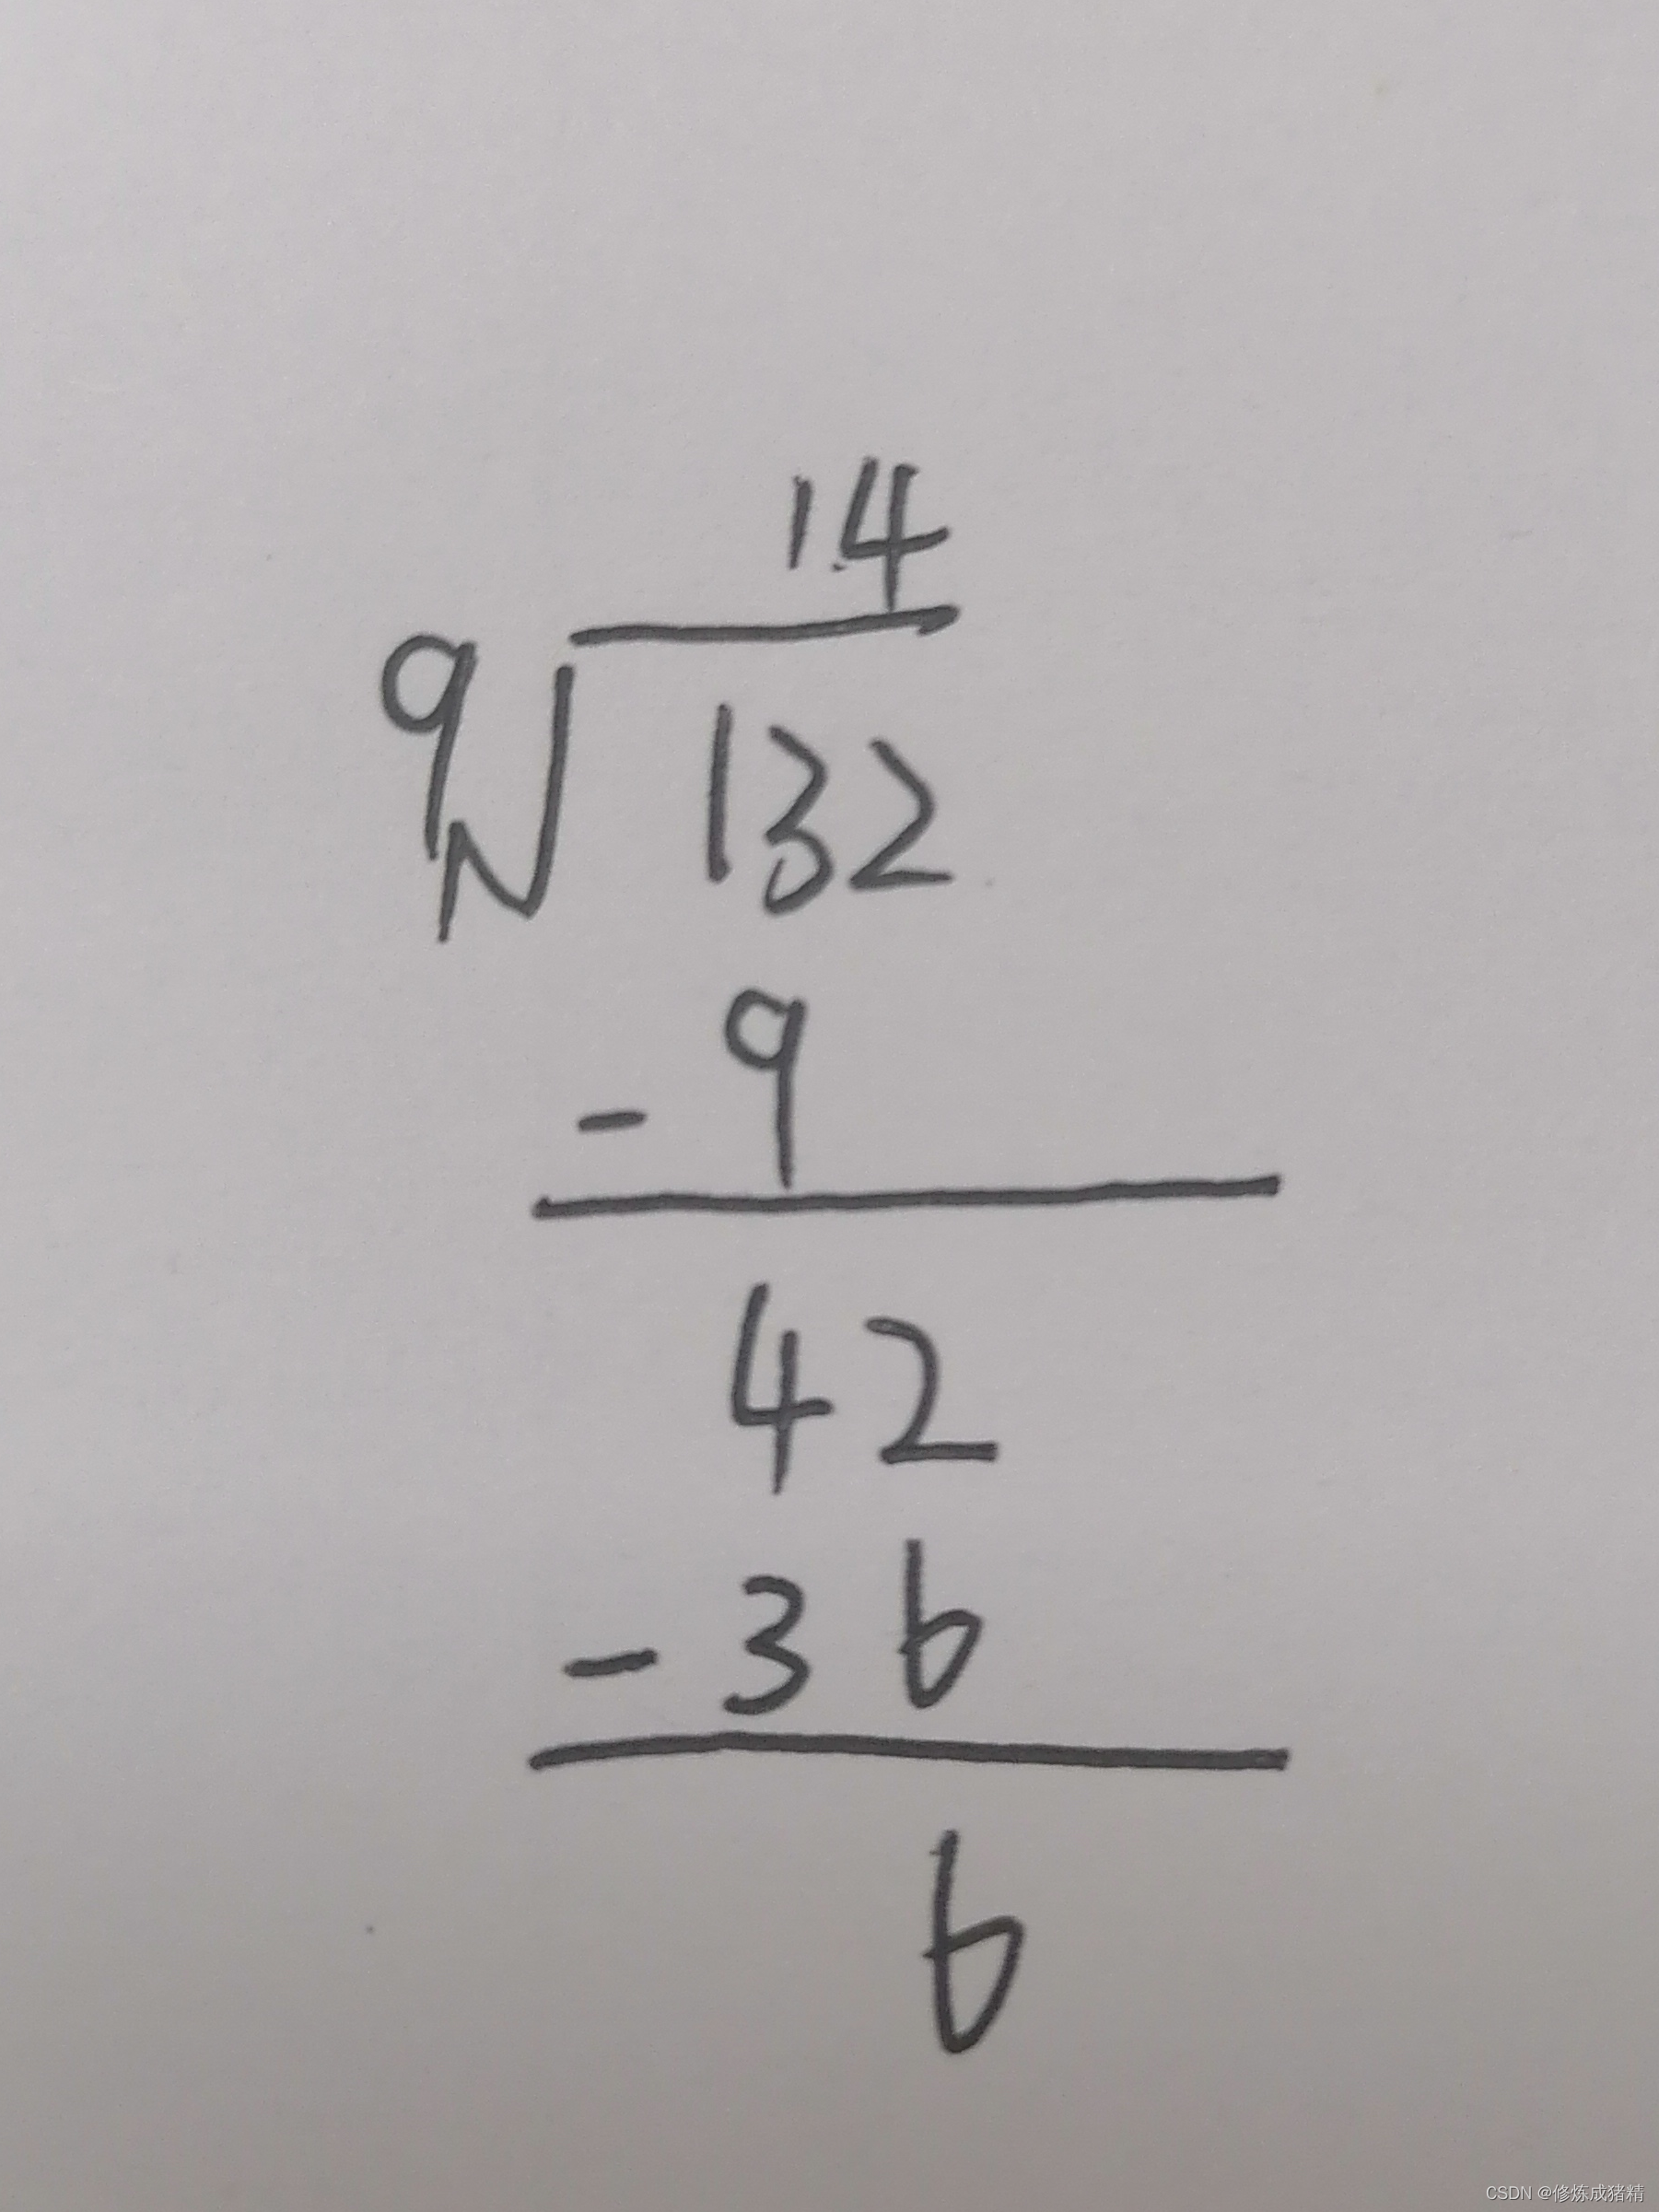 14
9 132
- 9
42
- 36
6
CSDN @修炼成猪精